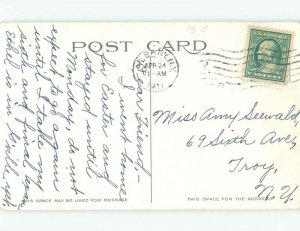 15¢
POST CARD
ALBANY, N.Y.
APR 24
-AM
1911
U.S. POSTAGE
Dear Friend,-
I went home
for Easter and
stayed until
Monday, do not
expect to go again
until I take my
and final exa
Ethel is in
Miss Amy Seewald,
69 Sixth Ave,
Troy,
N.Y.
THIS SPACE MAY BE USED FOR MESSAGE
THIS SPACE FOR THE ADDRESS